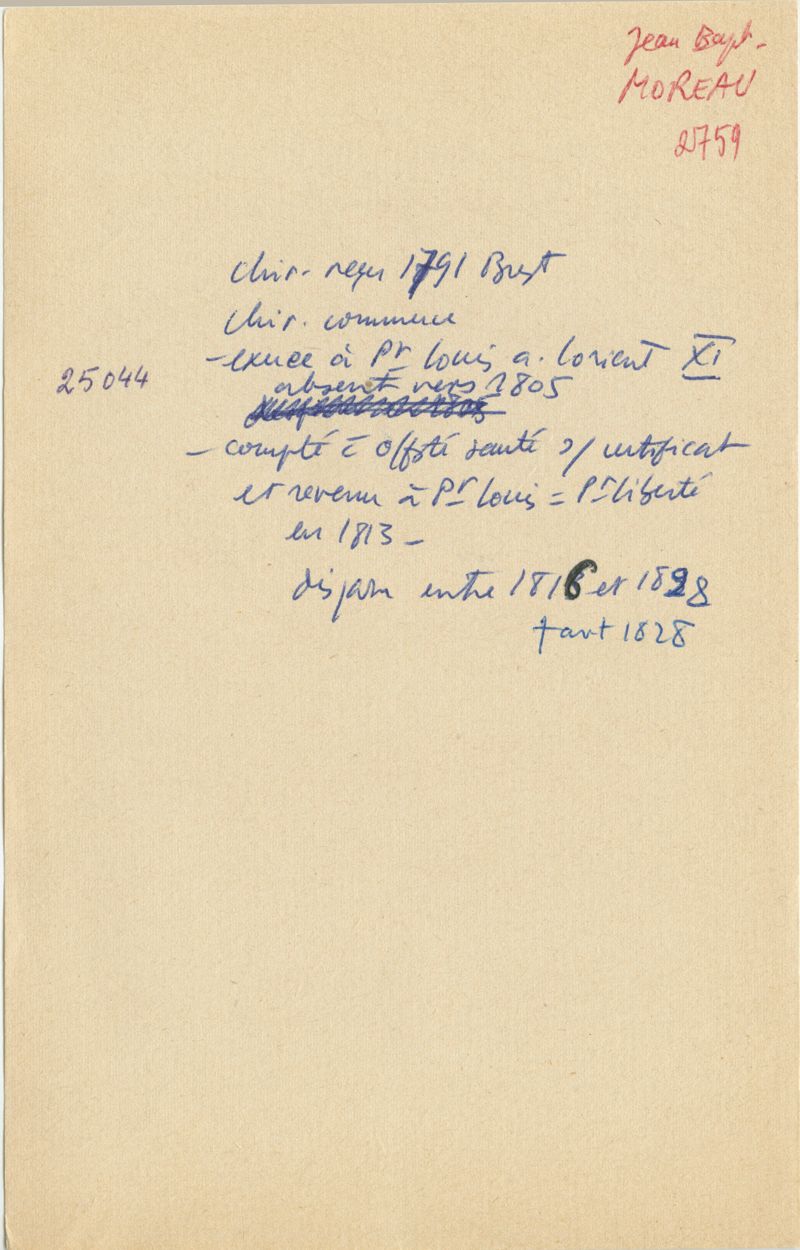 Jean Bapt.
MOREAU
2759
chir. reçu 1791 Brest
chir. commerce
- exerce à Pt Louis a. Lorient XI
25044
absent vers 1805
- compté c̄ offté santé s/ certificat
et revenu à Pt Louis = Pt Liberté
en 1813 -
disparu entre 1816 et 1828
† avt 1828